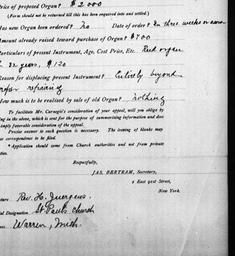 Price of proposed Organ? $2000
(Form should not be returned till this has been enquired into and settled.)
Has new Organ been ordered? No Date of order? In three weeks or
Amount already raised toward purchase of Organ? $700
Particulars of present Instrument, Age, Cost Price, Etc. Reed organ
32 years, $120
Reason for displacing present Instrument? Entirely beyond
repairing
How much is to be realized by sale of old Organ? Nothing
To facilitate Mr. Carnegie's consideration of your appeal, will you oblige by
filling in the above, which is sent for the purpose of summarizing information and does
not imply favorable consideration of the appeal.
Precise answer to each question is necessary. The issuing of blanks may
correspondence to be filed.
* Application should come from Church authorities and not from private
parties.
Respectfully,
JAS. BERTRAM, Secretary,
2 East 91st Street,
New York.
Rev. H.
Official Designation. St. Paul's Church
Warren, Minn.